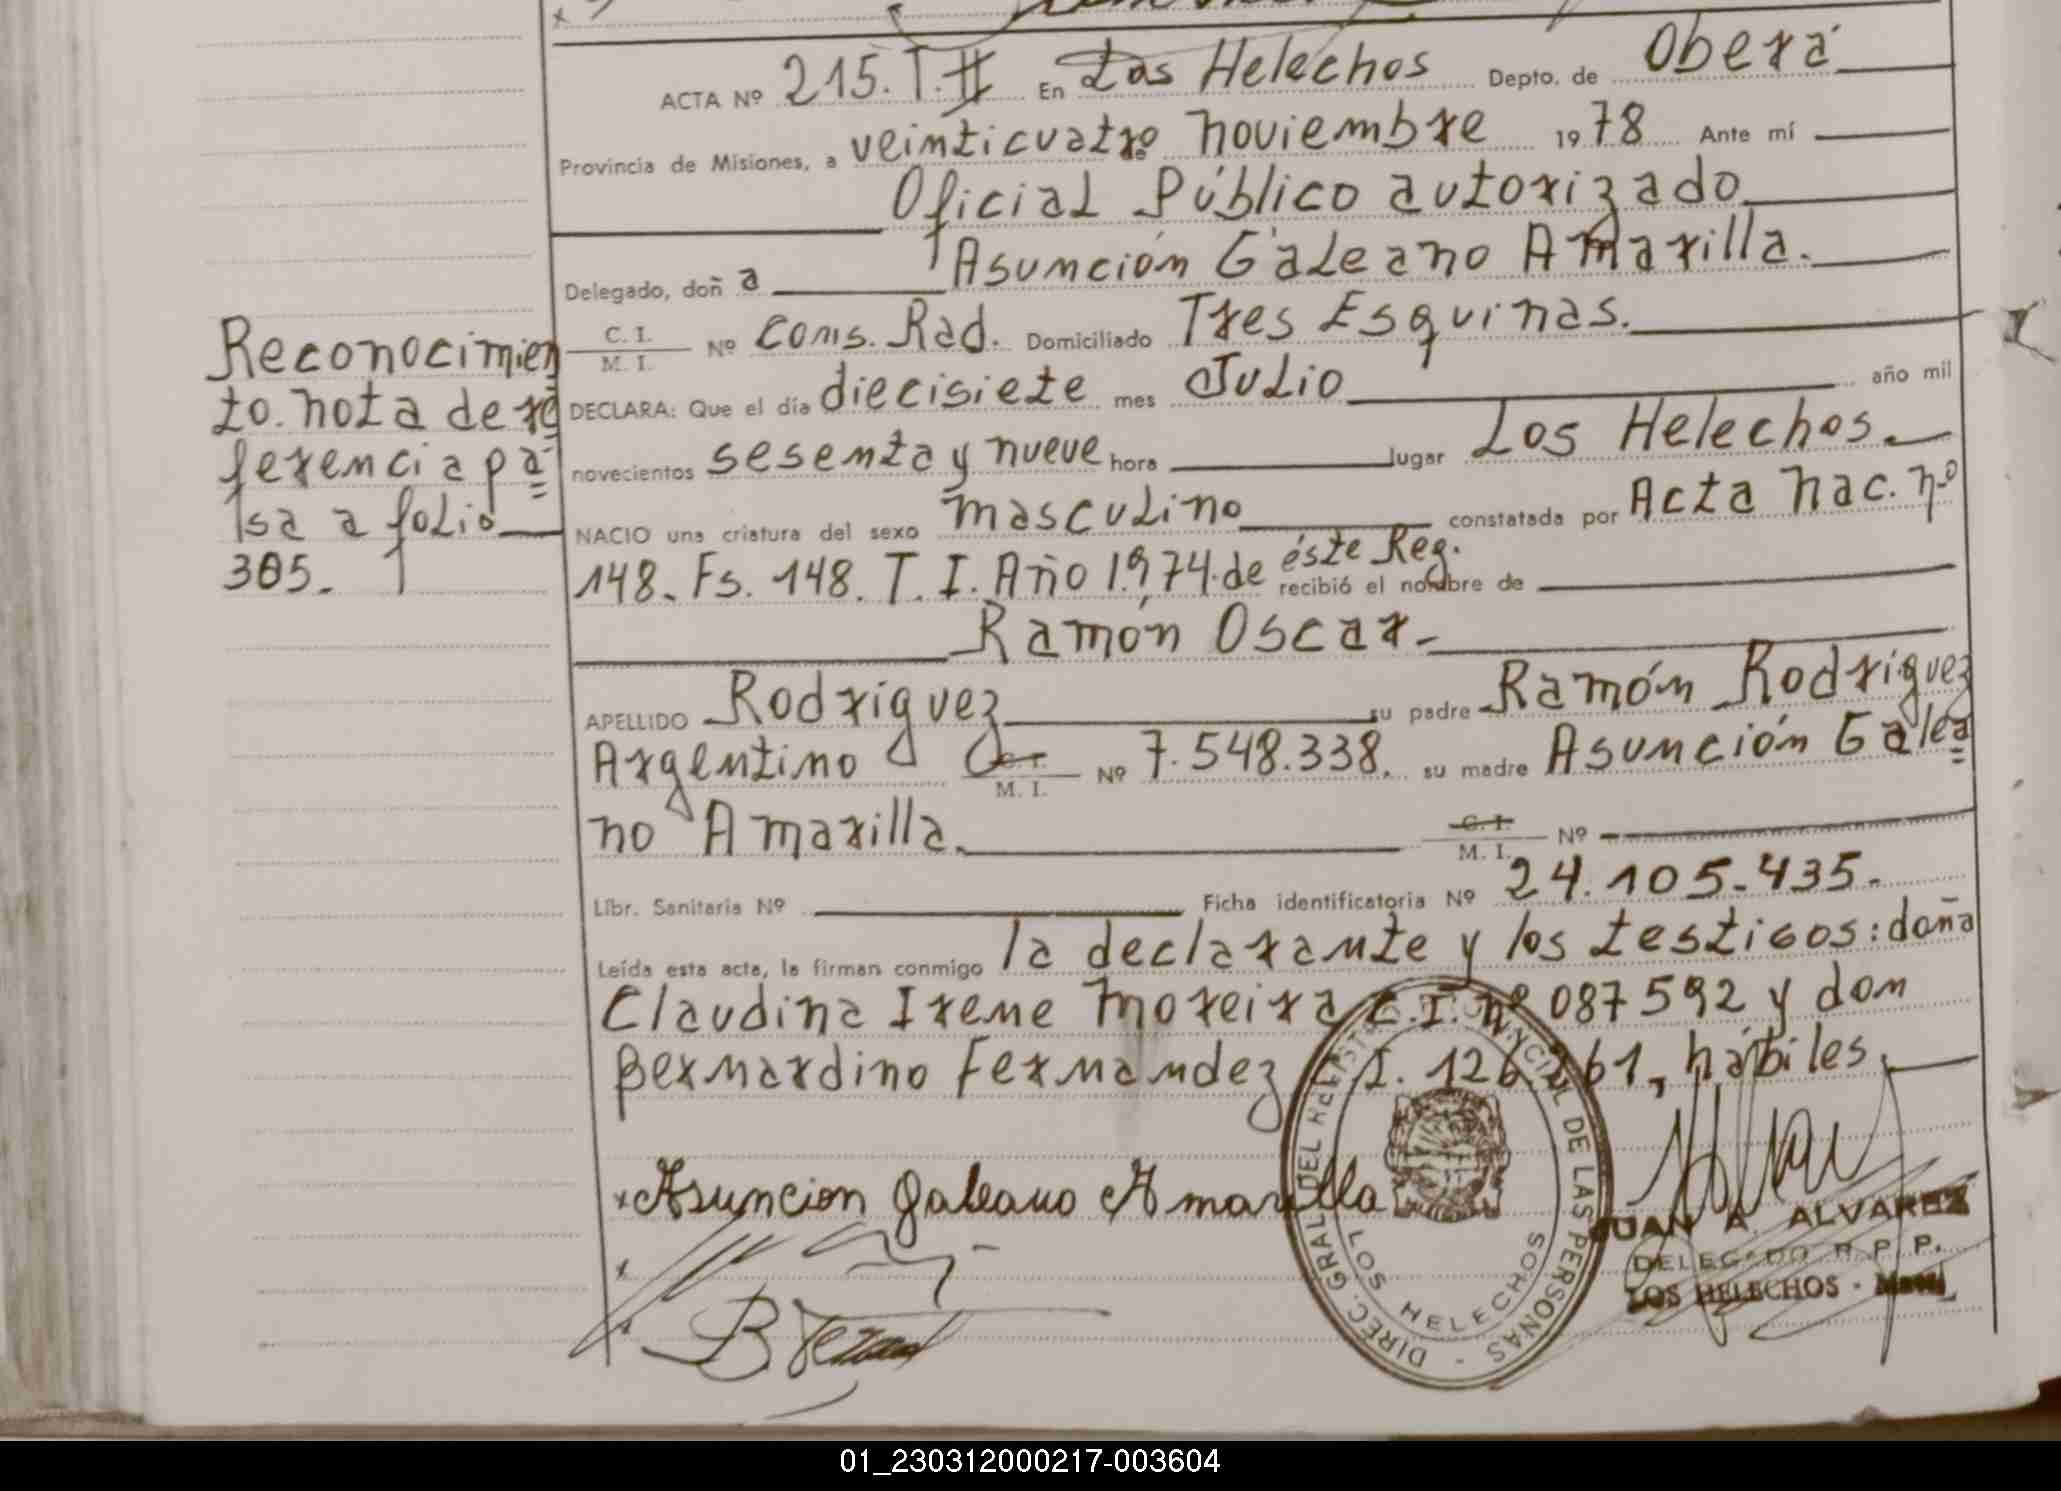 ACTA Nº 215. T. II En Los Helechos Depto. de Oberá
Provincia de Misiones, a veinticuatro noviembre 1978 Ante mí
Oficial Público autorizado
Delegado, doñ a Asunción Galeano Amarilla.
C. I.
M. I. Nº Cons. Rad. Domiciliado Tres Esquinas.
DECLARA: Que el día diecisiete mes Julio año mil
novecientos sesenta y nueve hora lugar Los Helechos.
NACIO una criatura del sexo masculino constatada por Acta nac. nº
148. Fs. 148. T. I. Año 1.974. de éste Reg. recibió el nombre de
Ramón Oscar.-
APELLIDO Rodriguez su padre Ramón Rodriguez
Argentino C. I.
M. I. Nº 7.548.338. su madre Asunción Galea
no Amarilla. C. I.
M. I. Nº
Libr. Sanitaria Nº Ficha identificatoria Nº 24.105.435.
Leída esta acta, la firman conmigo la declarante y los testigos: doña
Claudina Irene Moreira C.I. nº 087592 y don
Bernardino Fernandez C.I. 126.261, hábiles.
Reconocimien
to. nota de re
ferencia pa
sa a folio
305.
x Asuncion Galeano Amarilla
x
x
DIREC. GRAL. DEL REGISTRO PROVINCIAL DE LAS PERSONAS -
LOS HELECHOS
JUAN A. ALVAREZ
DELEGADO R. P. P.
LOS HELECHOS -
01_230312000217-003604